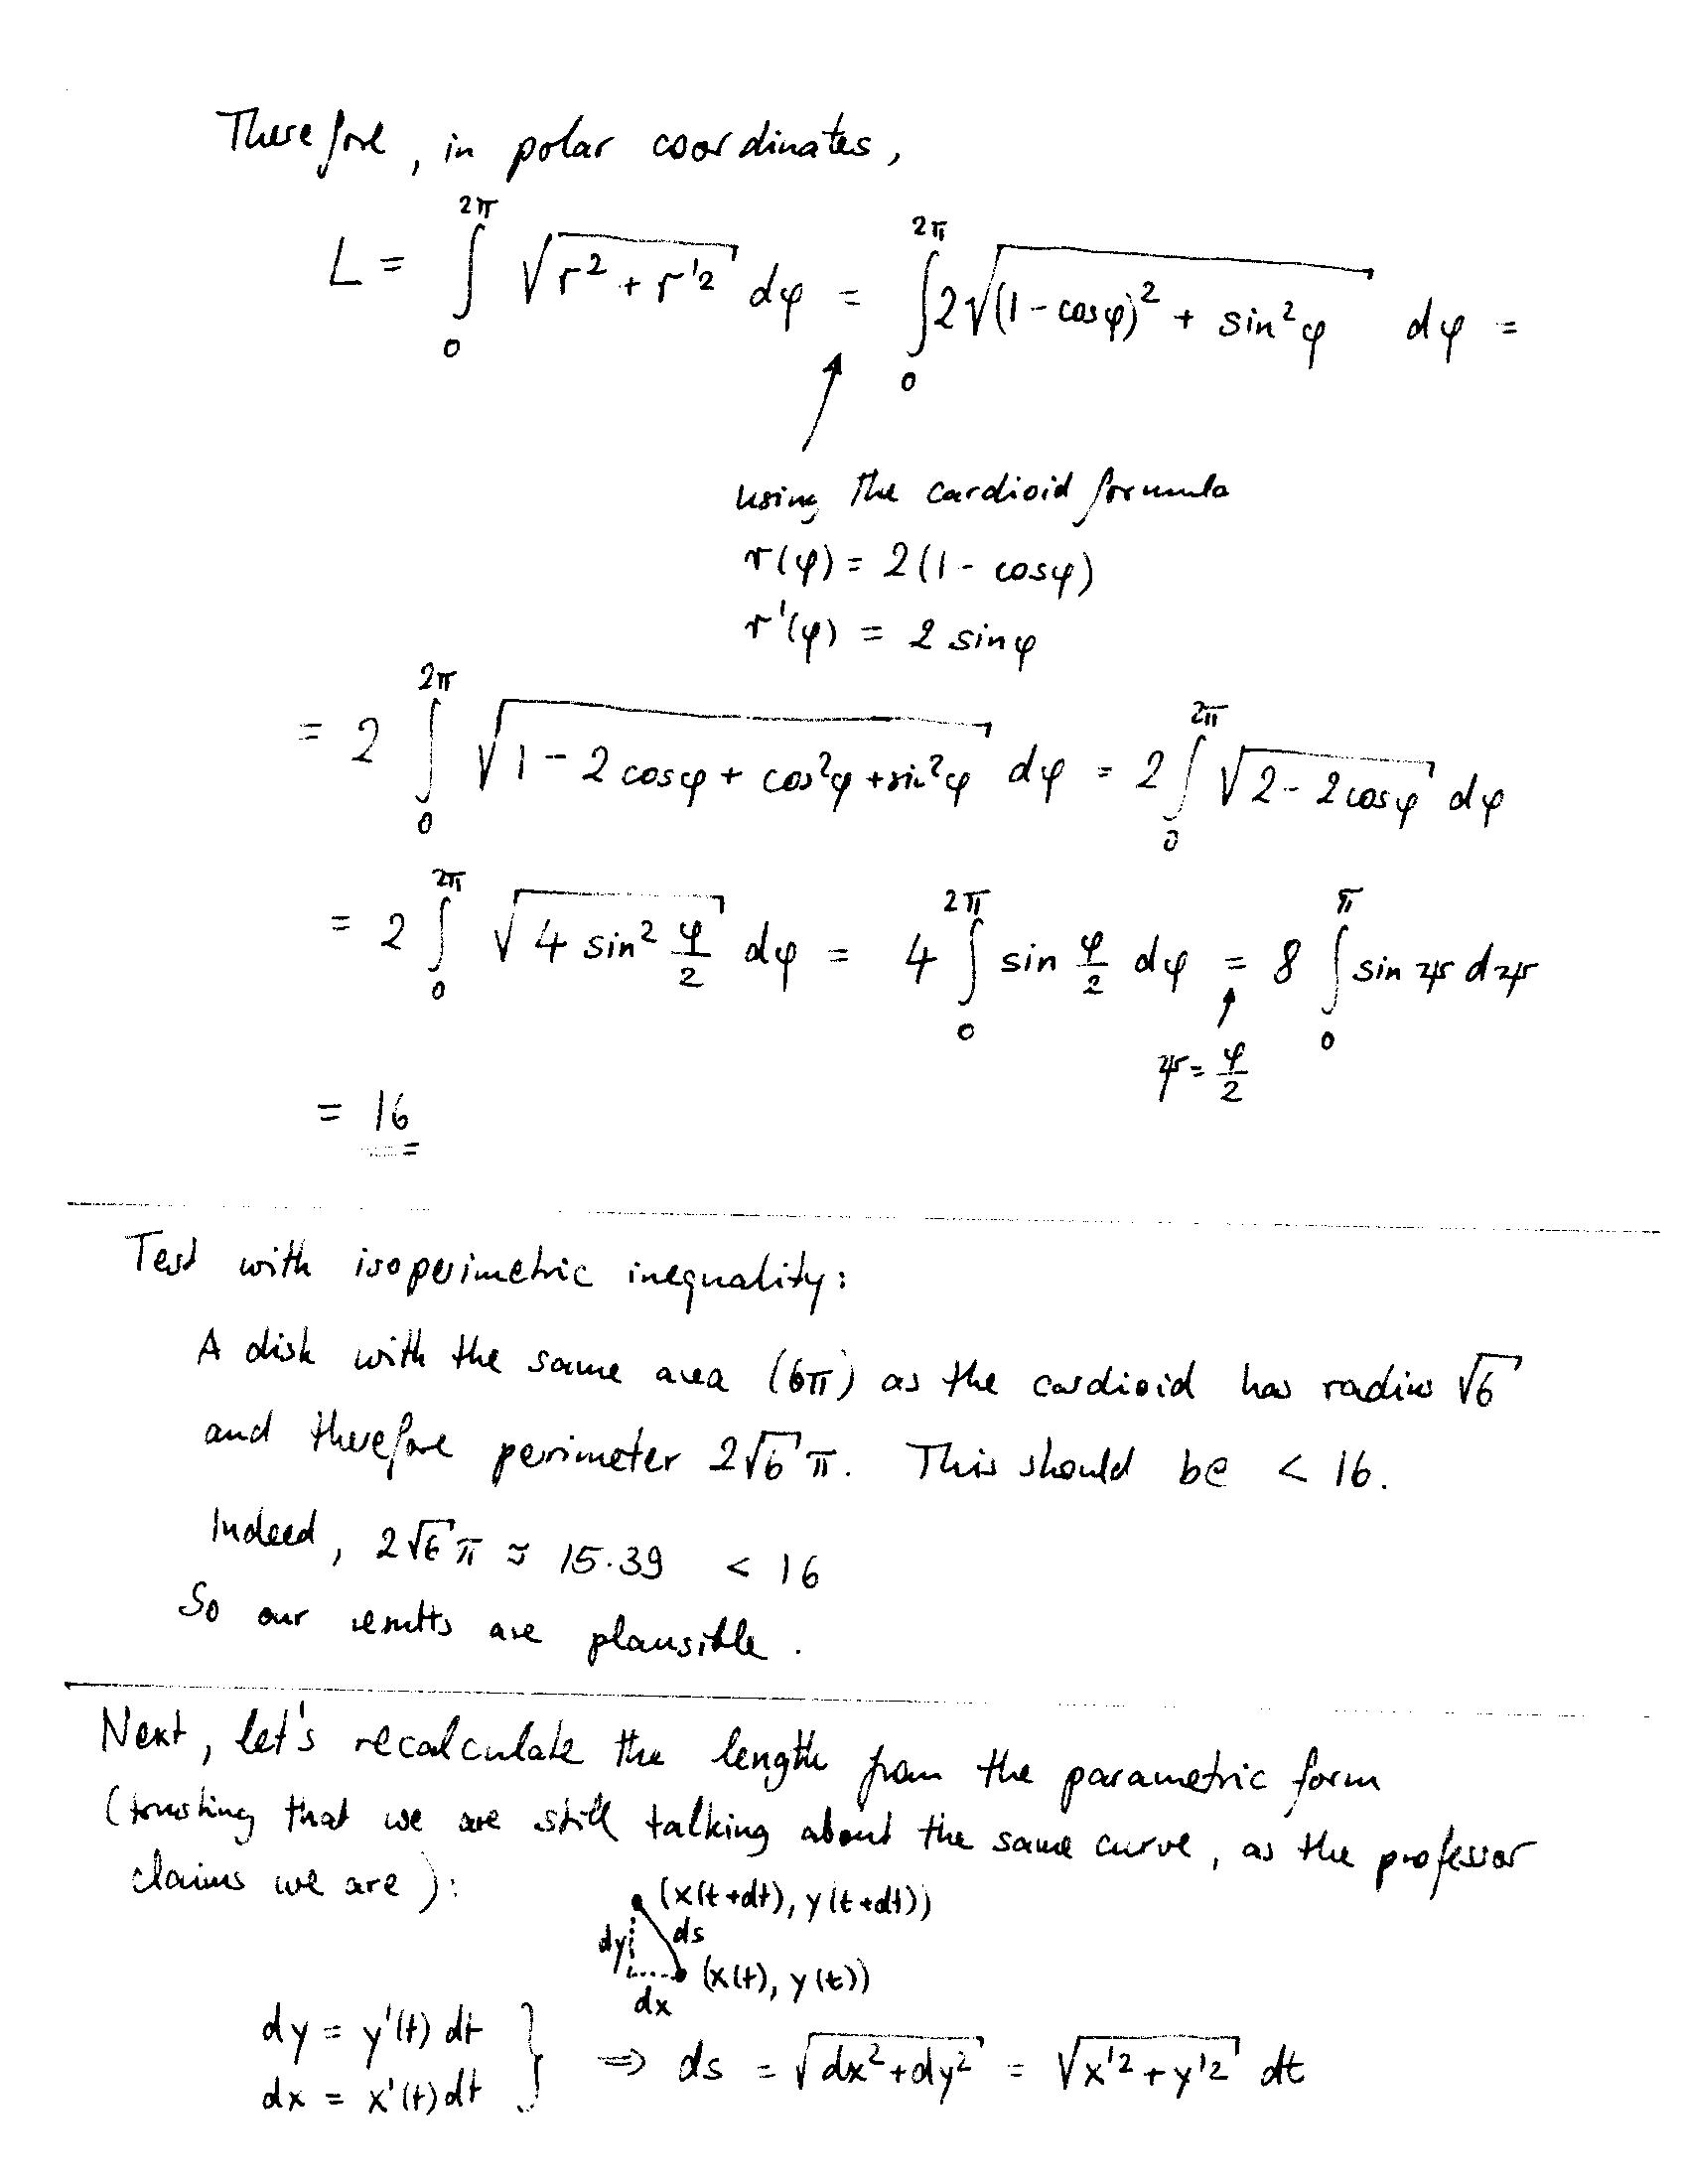 Therefore, in polar coordinates,
L = ∫₀^{2π} √(r² + r'²) dφ = ∫₀^{2π} 2√((1 - cosφ)² + sin²φ) dφ =
using the cardioid formula
r(φ) = 2(1 - cosφ)
r'(φ) = 2 sinφ
= 2 ∫₀^{2π} √(1 - 2 cosφ + cos²φ + sin²φ) dφ = 2 ∫₀^{2π} √(2 - 2cosφ) dφ
= 2 ∫₀^{2π} √(4 sin² φ/2) dφ = 4 ∫₀^{2π} sin φ/2 dφ = 8 ∫₀^{π} sin ψ dψ
ψ = φ/2
= 16
Test with isoperimetric inequality:
A disk with the same area (6π) as the cardioid has radius √6
and therefore perimeter 2√6 π. This should be < 16.
Indeed, 2√6 π ≈ 15.39 < 16
So our results are plausible.
Next, let's recalculate the length from the parametric form
(trusting that we are still talking about the same curve, as the professor
claims we are):
(x(t+dt), y(t+dt))
dy ds
(x(t), y(t))
dx
dy = y'(t) dt
dx = x'(t) dt } ⇒ ds = √(dx² + dy²) = √(x'² + y'²) dt